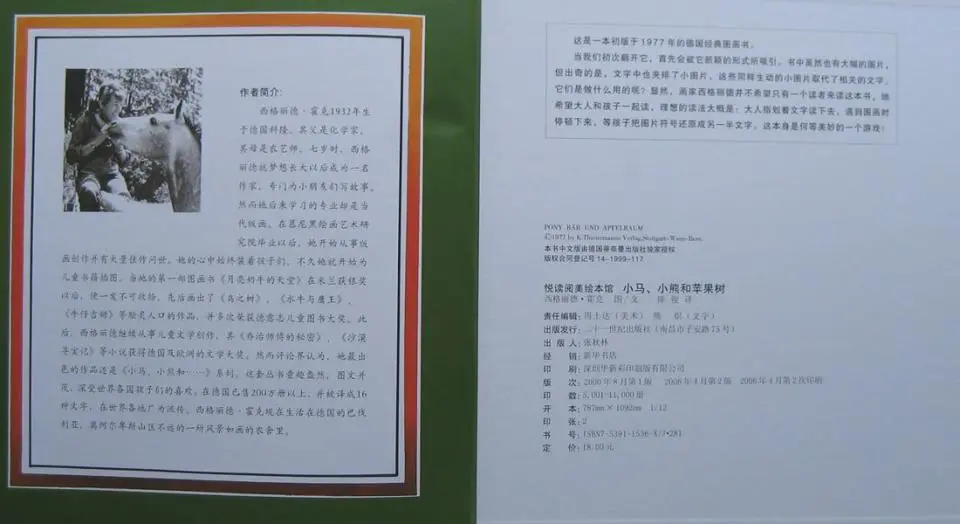 作者简介：
西格丽德·霍克1932年生
于德国科隆。其父是化学家，
其母是农艺师。七岁时，西格
丽德就梦想长大以后成为一名
作家，专门为小朋友们写故事。
然而她后来学习的专业却是当
代版画。在慕尼黑绘画艺术研
究院毕业以后，她开始从事版
画创作并有大量佳作问世。她的心中始终装着孩子们，不久她就开始为
儿童书籍插图。当她的第一部图画书《月亮奶牛的天堂》在米兰获银奖
以后，便一发不可收拾，先后画出了《岛之树》、《水牛与鹰王》、
《牛仔吉姆》等脍炙人口的作品，并多次荣获德意志儿童图书大奖。此
后，西格丽德继续从事儿童文学创作，其《乔治师傅的秘密》、《沙漠
寻宝记》等小说获得德国及欧洲的文学大奖。然而评论界认为，她最出
色的作品还是《小马、小熊和……》系列。这套丛书童趣盎然，图文并
茂，深受世界各国孩子们的喜欢。在德国已售200万册以上，并被译成16
种文字，在世界各地广为流传。西格丽德·霍克现在生活在德国的巴伐
利亚，莫柯尔卑斯山区不远的一所风景如画的农舍里。
这是一本初版于1977年的德国经典图画书。
当我们初次翻开它，首先会被它新颖的形式所吸引。书中虽然也有大幅的图片，
但出奇的是，文字中也夹排了小图片，这些同样生动的小图片取代了相关的文字。
它们是做什么用的呢？显然，画家西格丽德并不希望只有一个读者来读这本书，她
希望大人和孩子一起读，理想的读法大概是：大人指划着文字读下去，遇到图画时
停顿下来，等孩子把图片符号还原成另一半文字。这本身是何等美妙的一个游戏！
PONY BÄR UND APFELBAUM
©1977 by K.Thienemanns Verlag,Stuttgart-Wien-Bern.
本书中文版由德国蒂奈曼出版社独家授权
版权合同登记号 14-1999-117
悦读阅美绘本馆 小马、小熊和苹果树
西格丽德·霍克 图/文 徐俊 译
责任编辑：周士达（美术） 熊炽（文字）
出版发行：二十一世纪出版社（南昌市子安路75号）
出 版 人：张秋林
经 销：新华书店
印 刷：深圳华新彩印制版有限公司
版 次：2000年8月第1版 2006年4月第2版 2006年4月第2次印刷
印 数：5,001-11,000册
开 本：787mm×1092mm 1/12
印 张：2
书 号：ISBN7-5391-1536-X/J·281
定 价：18.00元